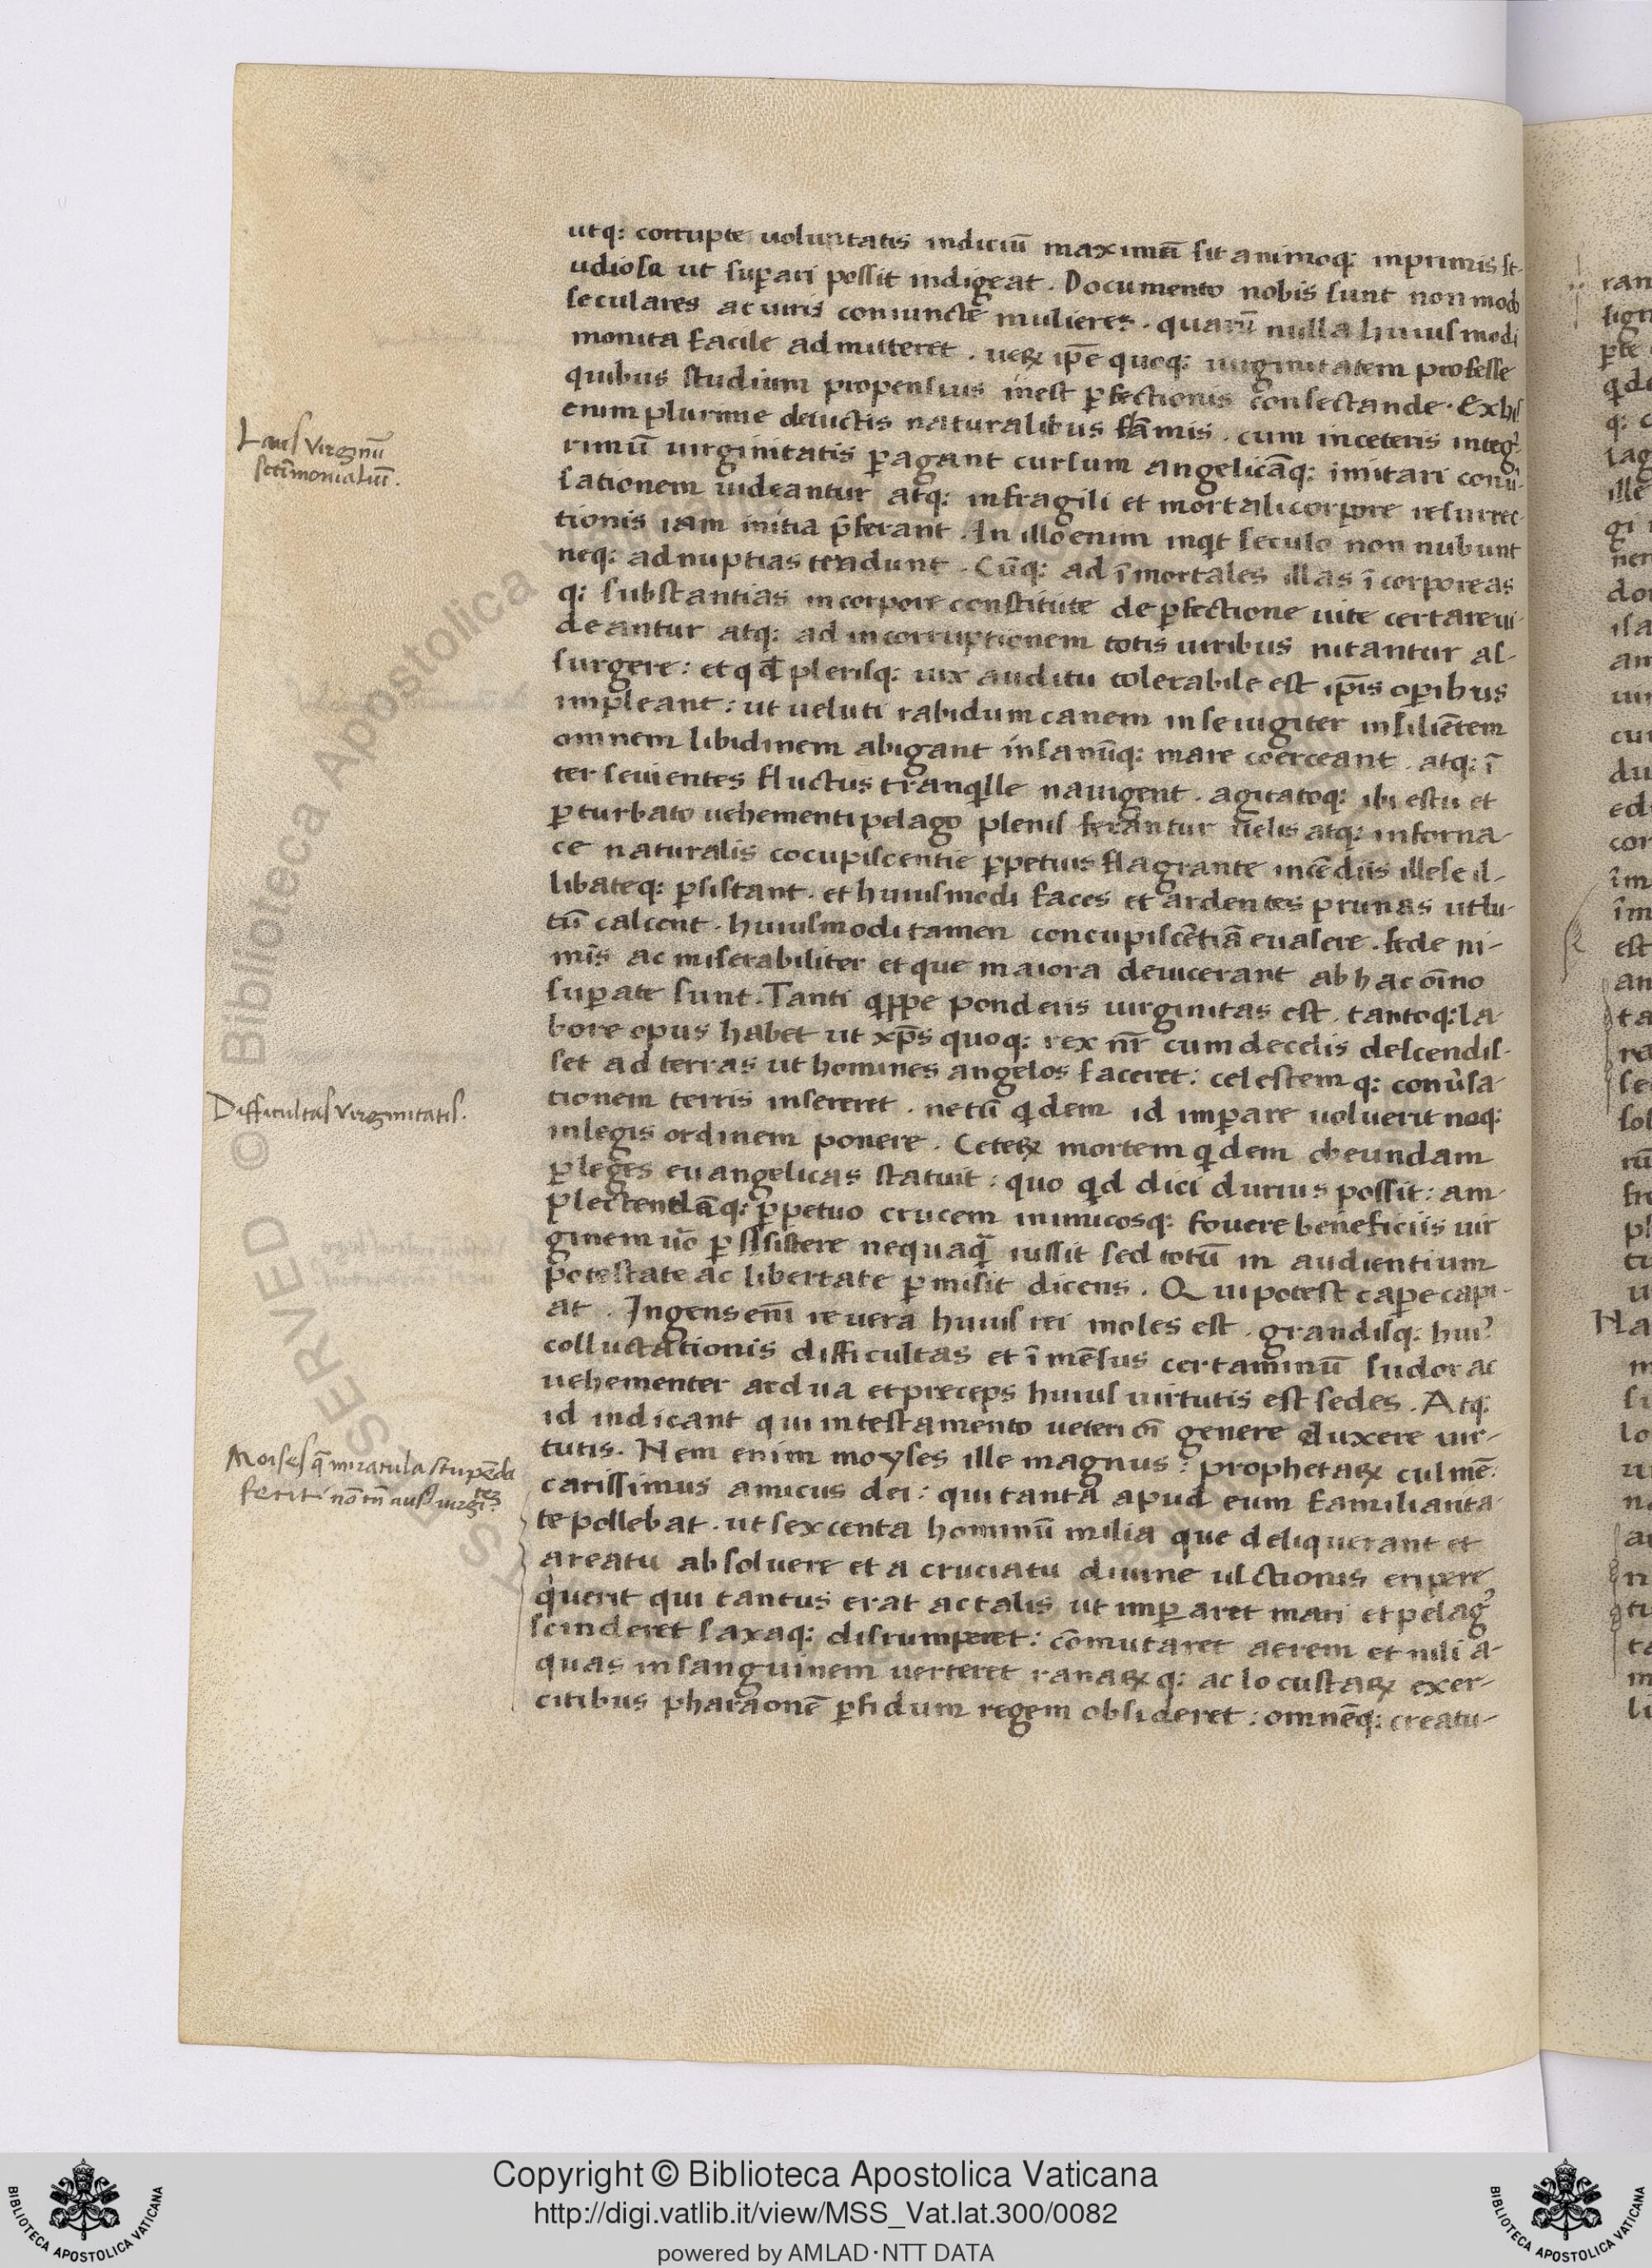 utq: corrupte uoluntatis indiciū maximū sit animoq: inprimis st-
udiosa ut suꝑari possit indigeat. Documento nobis sunt non modo
seculares ac uiris coniuncte mulieres. quarū nulla huiusmodi
monita facile admitteret. ueꝝ ip̄e quoq: uirginitatem professe
quibus studium propensius inest ꝑfectionis consectande. Ex his
enim plurime deuictis naturalibus flāmis. cum in ceteris integ̾
rimū uirginitatis ꝑagant cursum angelicāq: imitari conū-
sationem uideantur atq: in fragili et mortali corpore resurrec-
tionis iam initia p̄ferant. In illo enim inqͥt seculo non nubunt
neq: ad nuptias tradunt. Cūq: ad īmortales illas īcorporeas
q: substantias in corpore constitute de ꝑfectione uite certare ui-
deantur atq: ad incorruptionem totis uiribus nitantur as-
surgere: et qd̄ plerisq: uix auditu tolerabile est ip̄is oꝑibus
impleant: ut ueluti rabidum canem in se iugiter insiliētem
omnem libidinem abigant insanūq: mare coerceant. atq: ī
ter seuientes fluctus tranqͥlle nauigent. agitatoq: ibi estu et
ꝑturbato uehementi pelago plenis ferantur uelis atq: in forna-
ce naturalis cōcupiscentie ꝑpetuis flagrante incēdiis illese il-
libateq: ꝑsistant. et huiusmodi faces et ardentes prunas ut lu-
tū calcent. huiusmodi tamen concupiscētiā euasere. fede ni-
mis ac miserabiliter et que maiora deuicerant ab hac oīno
suꝑate sunt. Tanti qͥppe ponderis uirginitas est. tantoq: la-
bore opus habet ut xp̄s quoq: rex nr̄ cum de celis descendis-
set ad terras ut homines angelos faceret: celestemq: conu̓sa-
tionem terris insereret. ne tū qͥdem id imꝑare uoluerit neq:
in legis ordinem ponere. Ceteꝝ mortem qͥdem obeundam
ꝑ leges euangelicas statuit: quo qͥd dici durius possit: am-
plectendāq: ꝑpetuo crucem inimicosq: fouere beneficiis uir
ginem uo̓ ꝑsistere nequaqͣ̄ iussit sed totū in audientium
potestate ac libertate ꝑmisit dicens. Qui potest caꝑe capi-
at. Ingens eni̅ re uera huius rei moles est. grandisq: hui̾
colluctationis difficultas et īmēsus certaminū sudor ac
uehementer ardua et preceps huius uirtutis est sedes. Atq:
id indicant qui in testamento ueteri oī genere duxere uir-
tutis. Nem enim moyses ille magnus: prophetaꝝ culmē:
carissimus amicus dei: qui tanta apud eum familiarita-
te pollebat. ut sexcenta hominū milia que deliquerant et
a reatu absoluere et a cruciatu diuine ultionis eripere
q̓uerit qui tantus erat ac talis ut imꝑaret mari et pelag̾
scinderet saxaq: disrumperet: cōmutaret aerem et nili a-
quas in sanguinem uerteret ranaꝝq: ac locustaꝝ exer-
citibus pharaonē ꝑfidum regem obsideret: omnēq: creatu-
Laus virginū
sc̄timonialiū.
Difficultas virginitatis.
Moises q̄ miracula stupēda
fecit: nō tn̄ aus̾ uirgi
Copyright © Biblioteca Apostolica Vaticana
http://digi.vatlib.it/view/MSS_Vat.lat.300/0082
powered by AMLAD·NTT DATA
BIBLIOTECA APOSTOLICA VATICANA
BIBLIOTECA APOSTOLICA VATICANA